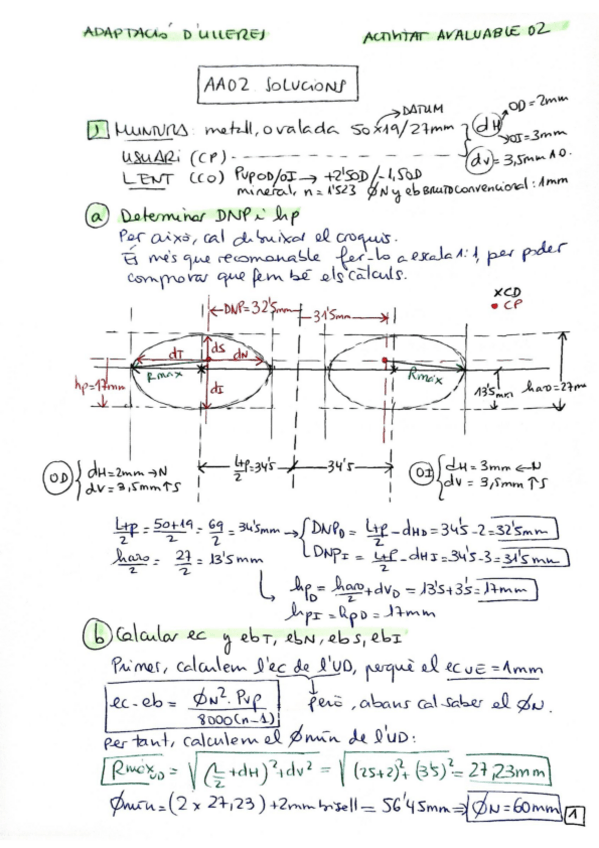 ADAPTACIÓ D'ULLERES
ACTIVITAT AVALUABLE 02
AA02 SOLUCIONS
DATUM
1) MUNTURA: metall, ovalada 50x19/27mm
dH
OD=2mm
OI=3mm
dV = 3,5mm A.O.
USUARI (CP)
LENT (CO) PVPOD/OI → +2'50D/-1,50D
mineral, n=1'523 ØN y eb BRUTO convencional: 1mm
a) Determinar DNP i hp
Per això, cal dibuixar el croquis.
És més que recomanable fer-lo a escala 1:1, per poder
comprovar que fem bé els càlculs.
XCD
• CP
DNP=32'5mm
31'5mm
dT
dS
dN
Rmàx
dI
hp=17mm
Rmàx
13'5mm
haro=27mm
OD
dH=2mm → N
dV = 3,5mm ↑S
L+p/2=34'5
34'5
OI
dH=3mm ← N
dV = 3,5mm ↑S
L+p/2 = 50+19/2 = 69/2 = 34'5mm → DNPD = L+p/2 - dHD = 34'5-2 = 32'5mm
haro/2 = 27/2 = 13'5mm DNPI = L+p/2 - dHI = 34'5-3 = 31'5mm
hpD = haro/2 + dVD = 13'5+3'5 = 17mm
hpI = hpD = 17mm
b) Calcular ec y ebT, ebN, ebS, ebI
Primer, calculem l'ec de l'UD, perquè el ec UE = 1mm
ec-eb = ØN²·Pvp/8000(n-1)
però, abans cal saber el ØN.
per tant, calculem el Ømín de l'UD:
RmàxUD = √(L/2+dH)²+dV² = √(25+2)²+(3'5)² = 27,23mm
Ømín = (2 x 27,23) + 2mm bisell = 56'45mm ⇒ ØN=60mm
1